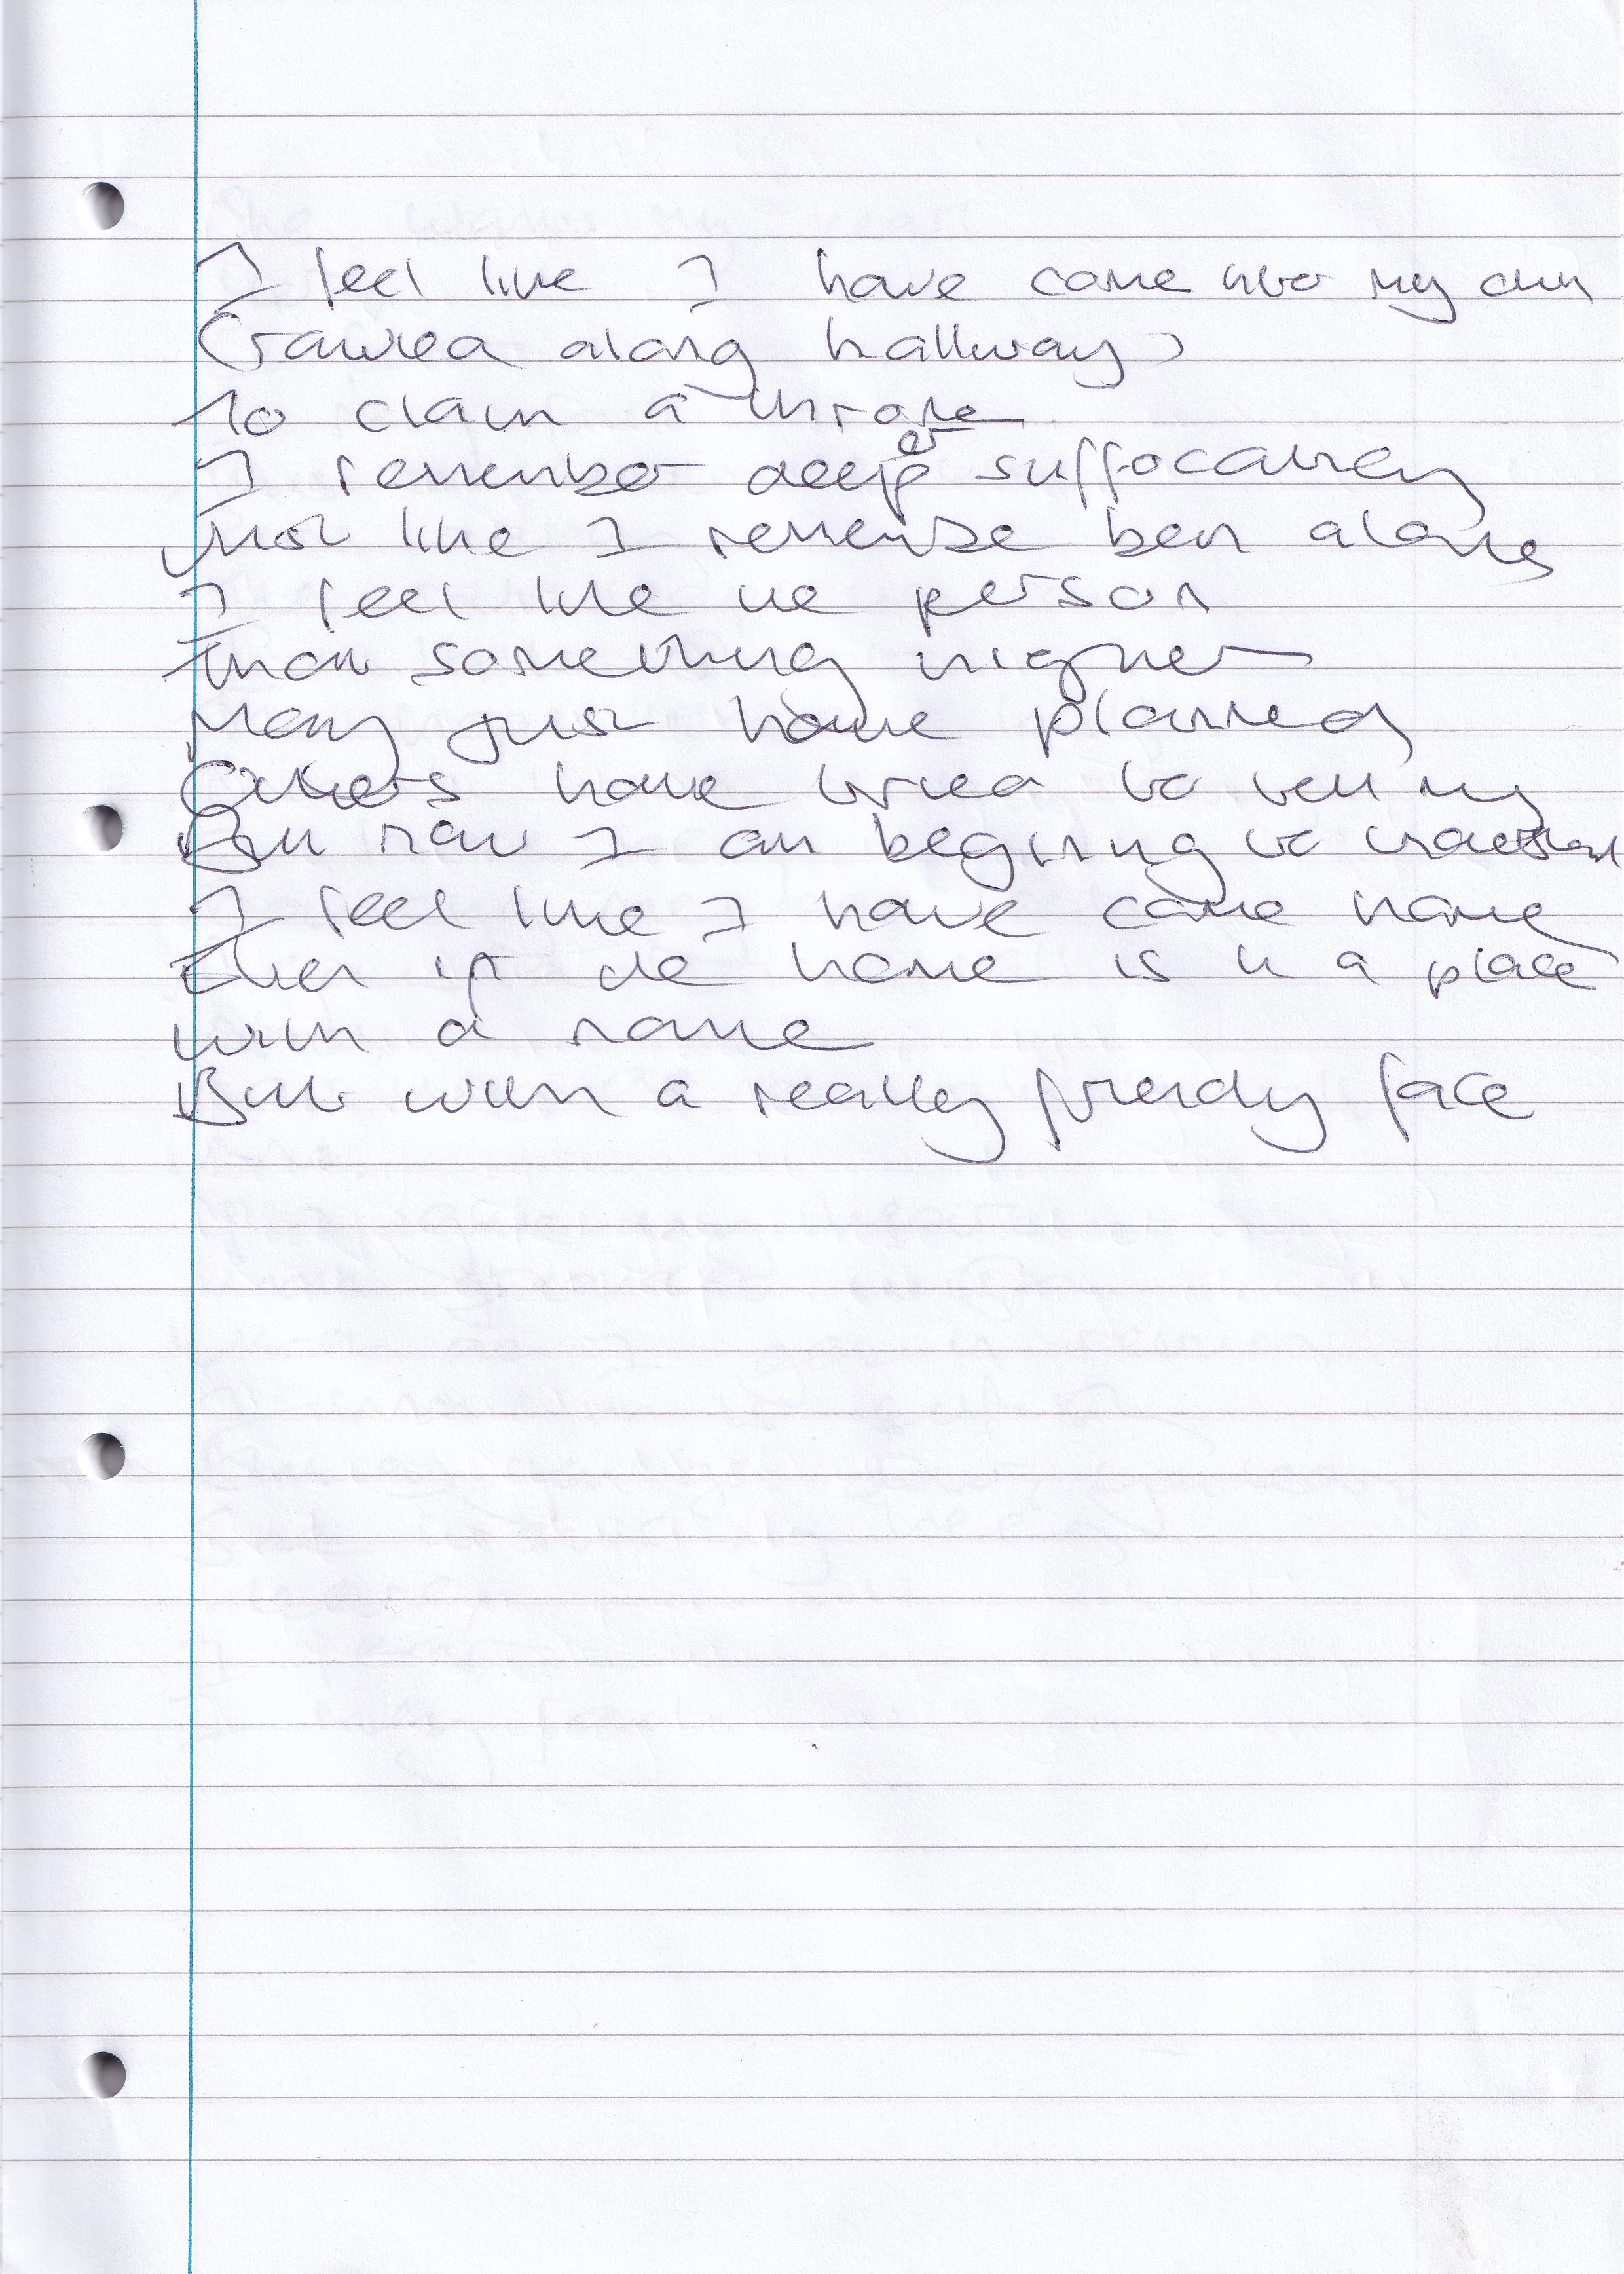 I feel like I have come into my own
Crawled along hallways
To claim a throne
I remember deeper suffocating
Just like I remember been alone
I feel like the person
That something higher
May just have planned
Others have tried to tell my
But now I am begining to understand
I feel like I have come home
Even if the home is in a place
With a name
But with a really friendly face